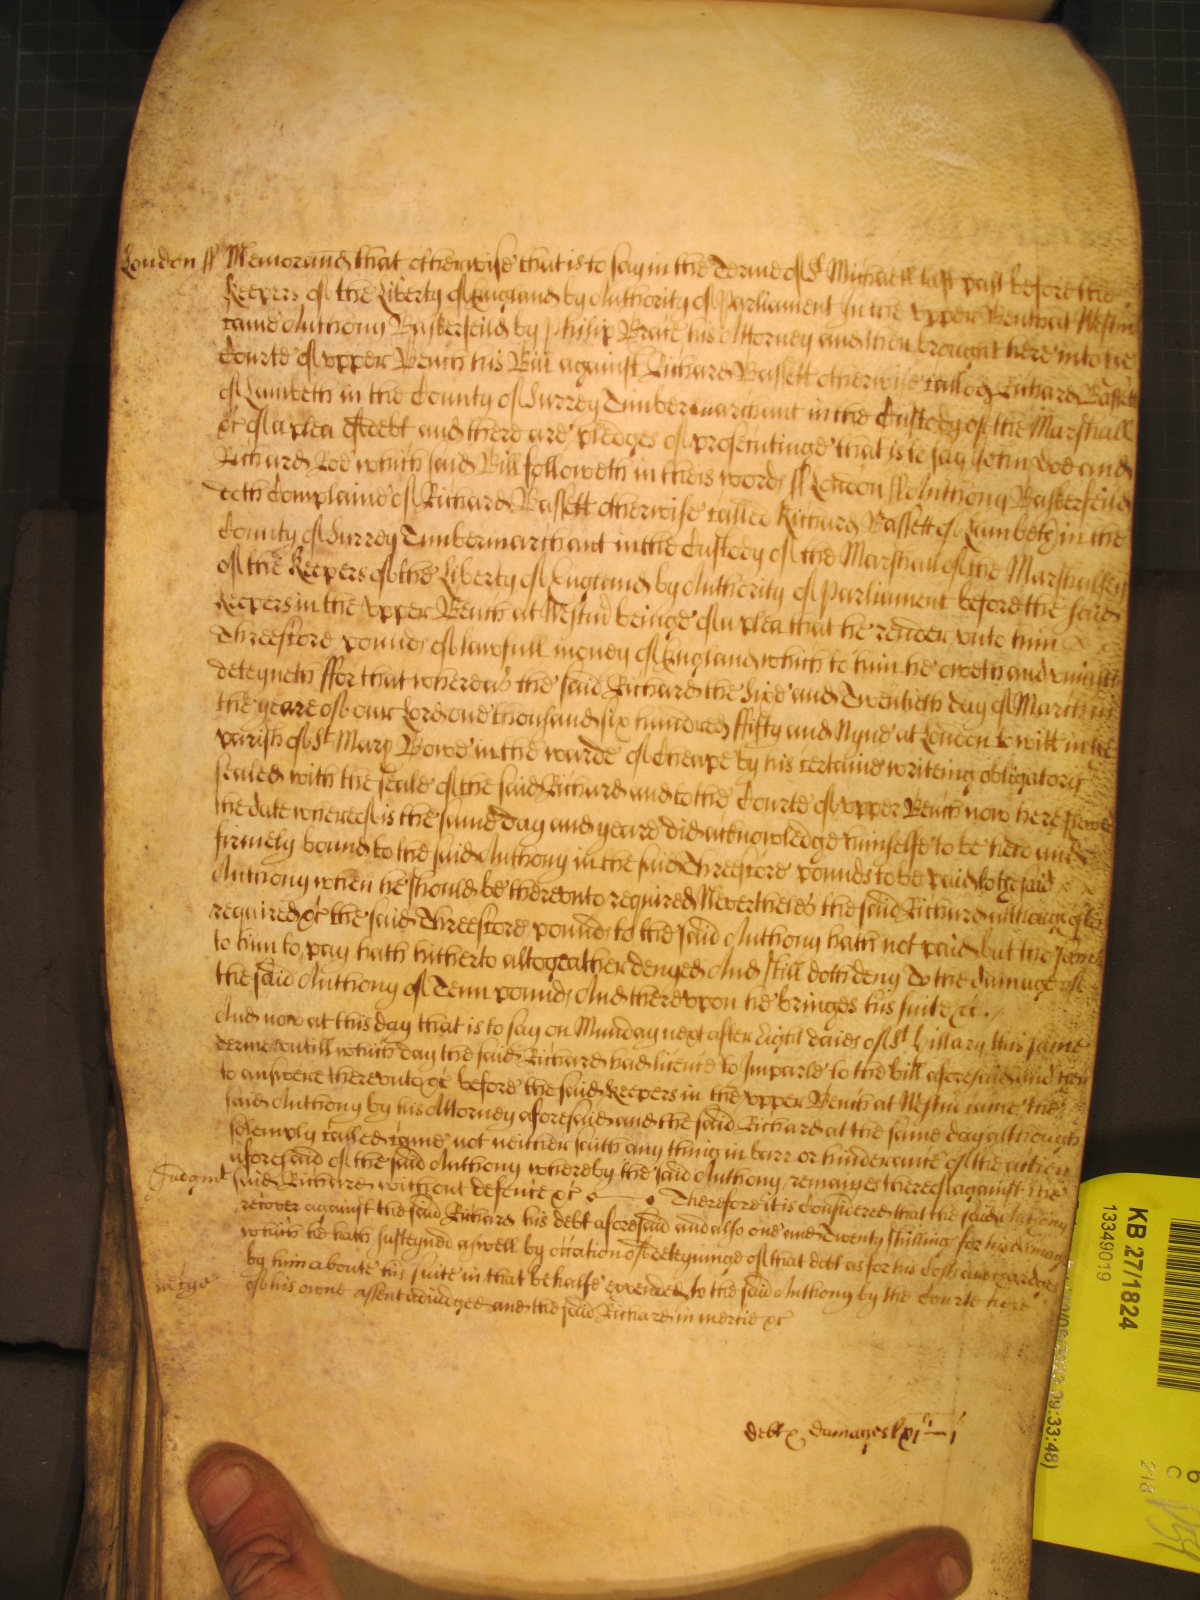 London ss Memorand that otherwise that is to say in the Terme of St Michaell last past before the
Keepers of the Liberty of England by Authority of Parliament In the Upper Bench at Westm
came Anthony Baskerfeild by Philip Brace his Attorney and then brought here into the
Courte of Upper Bench his Bill against Richard Bassett otherwise called Richard Bassett
of Lambeth in the County of Surrey Timbermarchant in the Custody of the Marshall
&c of a plea of debt and there are pledges of prosecutinge that is to say John Doe and
Richard Roe which said Bill followeth in theis words ss London ss Anthony Baskerfeild
doth Complaine of Richard Bassett otherwise called Richard Bassett of Lambeth in the
County of Surrey Timbermarchant in the Custody of the Marshall of the Marshalsey
of the Keepers of the Liberty of England by Authority of Parliament before the said
Keepers in the Upper Bench at Westm beinge of a plea that he render unto him
Threescore pounds of lawfull money of England which to him he oweth and uniustly
deteyneth ffor that whereas the said Richard the Sixe and Twentieth day of March in
the yeare of our Lord one thousand six hundred fifty and Nyne at London to witt in the
parish of St Mary Bowe in the warde of Cheape by his certaine writeing obligatory
sealed with the seale of the said Richard and to the Courte of Upper Bench now here shewed
the date whereof is the same day and yeare did acknowledge himselfe to be held and
firmely bound to the said Anthony in the said Threescore pounds to be paid to the said
Anthony when he should be thereunto required Neverthelesse the said Richard although often
required &c the said Threescore pounds to the said Anthony hath not paid but the same
to him to pay hath hitherto altogeather denyed And still doth deny To the damage of
the said Anthony of Tenn pounds And thereupon he bringes his suite &c.
And now at this day that is to say on Munday next after Eight daies of St Hillary this same
terme untill which day the said Richard had licence to Imparle to the bill aforesaid and then
to answere thereunto &c before the said Keepers in the Upper Bench at Westm came the
said Anthony by his Attorney aforesaid and the said Richard at the same day although
solemply called came not neither saith any thing in barr or hinderance of the action
aforesaid of the said Anthony whereby the said Anthony remaynes thereof against the
Judgmt said Richard without defence &c Therefore it is Considered that the said Anthony
recover against the said Richard his debt aforesaid and also one and Twenty shillings for his damages
which he hath susteyned aswell by occation of deteyninge of that debt as for his Costs and charges
by him aboute his suite in that behalfe expended to the said Anthony by the Courte here
mercye of his owne assent adiudged and the said Richard in mercie &c
debt & damages lxj li – j s
KB 27/1824
13349019
218